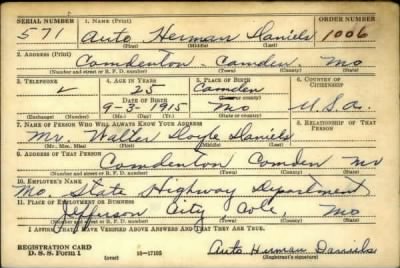 SERIAL NUMBER 1. NAME (Print) ORDER NUMBER
571 Auto Herman Daniels 1006
(First) (Middle) (Last)
2. ADDRESS (Print)
Comdenton Camden Mo
(Number and street or R. F. D. number) (Town) (County) (State)
3. TELEPHONE 4. AGE IN YEARS 5. PLACE OF BIRTH 6. COUNTRY OF CITIZENSHIP
25 Camden
(Town or county)
DATE OF BIRTH
9-2-1915 Mo U.S.A.
(Exchange) (Number) (Mo.) (Day) (Yr.) (State or country)
7. NAME OF PERSON WHO WILL ALWAYS KNOW YOUR ADDRESS 8. RELATIONSHIP OF THAT PERSON
Mr. Walter Doyle Daniels
(Mr., Mrs., Miss) (First) (Middle) (Last)
9. ADDRESS OF THAT PERSON
Comdenton Comden Mo
(Number and street or R. F. D. number) (Town) (County) (State)
10. EMPLOYER'S NAME
Mo. State Highway Department
11. PLACE OF EMPLOYMENT OR BUSINESS
Jefferson City, Cole, Mo
(Number and street or R. F. D. number) (Town) (County) (State)
I AFFIRM THAT I HAVE VERIFIED ABOVE ANSWERS AND THAT THEY ARE TRUE.
REGISTRATION CARD
D. S. S. Form 1 (over) 16-17105 Auto Herman Daniels
(Registrant's signature)